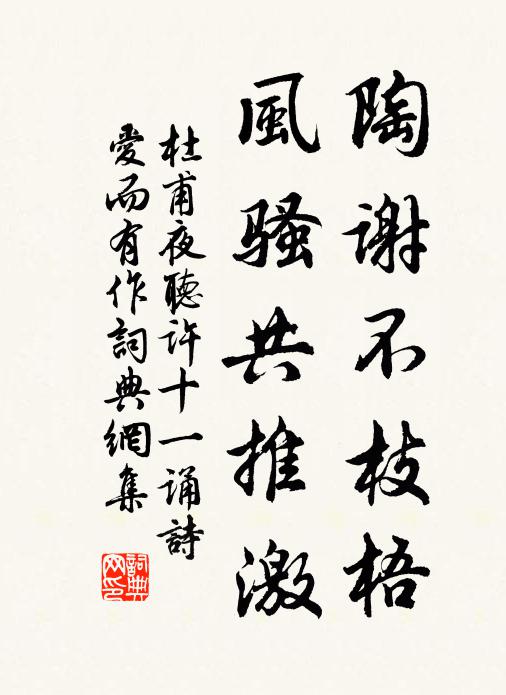 陶谢不枝梧
風骚共推激
杜甫夜聽许十一诵詩
愛而有作詞典網集
詞典网印